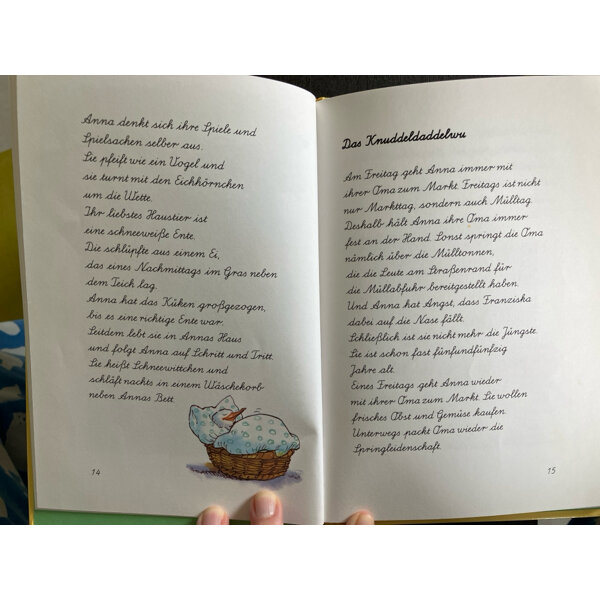 Anna denkt sich ihre Spiele und
Spielsachen selber aus.
Sie pfeift wie ein Vogel und
sie turnt mit den Eichhörnchen
um die Wette.
Ihr liebstes Haustier ist
eine schneeweiße Ente.
Die schlüpfte aus einem Ei,
das eines Nachmittags im Gras neben
dem Teich lag.
Anna hat das Küken großgezogen,
bis es eine richtige Ente war.
Seitdem lebt sie in Annas Haus
und folgt Anna auf Schritt und Tritt.
Sie heißt Schneewittchen und
schläft nachts in einem Wäschekorb
neben Annas Bett.
14
Das Knuddeldaddelwu
Am Freitag geht Anna immer mit
ihrer Oma zum Markt. Freitags ist nicht
nur Markttag, sondern auch Mülltag.
Deshalb hält Anna ihre Oma immer
fest an der Hand. Sonst springt die Oma
nämlich über die Mülltonnen,
die die Leute am Straßenrand für
die Müllabfuhr bereitgestellt haben.
Und Anna hat Angst, dass Franziska
dabei auf die Nase fällt.
Schließlich ist sie nicht mehr die Jüngste.
Sie ist schon fast fünfundfünfzig
Jahre alt.
Eines Freitags geht Anna wieder
mit ihrer Oma zum Markt. Sie wollen
frisches Obst und Gemüse kaufen.
Unterwegs packt Oma wieder die
Springleidenschaft.
15